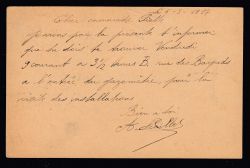 le 6-3-1927
Cher camarade
Je viens par la présente t'informer
que tu dois te trouver Vendredi
9 courant à 3½ heures B. rue des Bogards
à l'entrée du gazomètre, pour la
visite des installations
Bien à toi